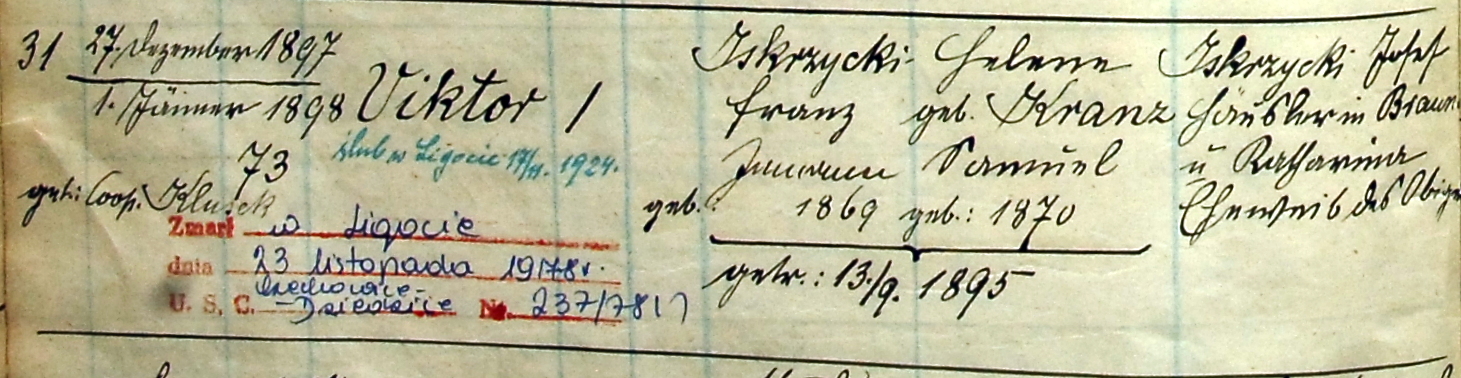 31 27. Dezember 1897
1. Jänner 1898 Viktor /
73
ślub w Ligocie 17/11. 1924.
get.: Coop. Klusek
Zmarł w Ligocie
dnia 23 listopada 1978 r.
U. S. C. Czechowice-
Dziedzice Nr. 237/78
Iskrzycki Helene
Franz geb. Kranz
Samuel
geb. 1869 geb.: 1870
getr.: 13./9. 1895
Iskrzycki Josef
Häusler in Braun
u Katharina
Eheweib des Obige